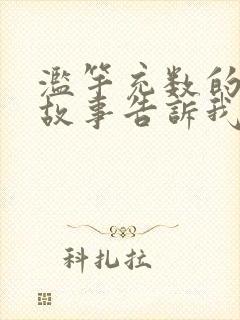 濫竽充数的
故事告訴我
科扎拉